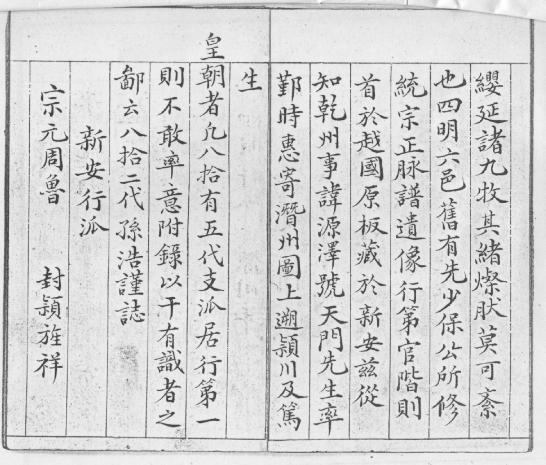 纓延諸九牧其緒燦肰莫可紊
也四明六邑舊有先少保公所修
統宗正脉譜遺像行第官階則
首於越國原板藏於新安兹從
知乾州事諱源澤號天門先生率
鄞時惠寄潛州圖上遡頴川及篤
生
皇朝者凢八拾有五代支派居行第一
則不敢率意附錄以干有識者之
鄙云八拾二代孫浩謹誌
新安行派
宗元周魯 封頴旌祥